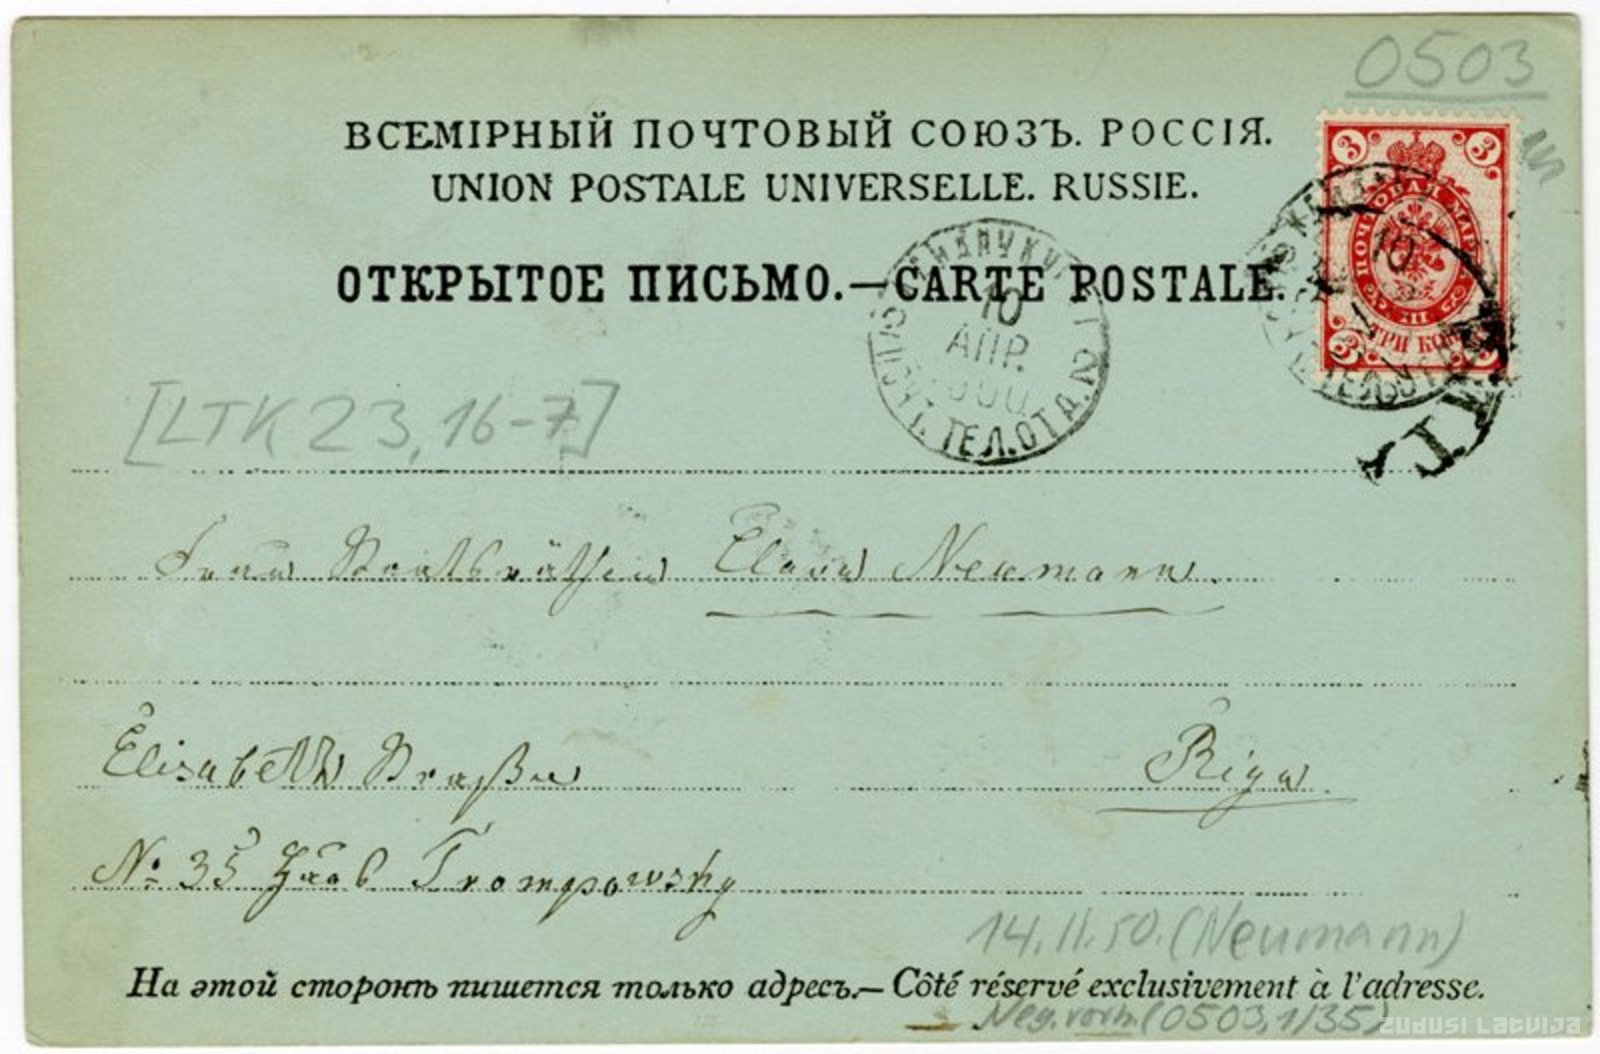 0503
ВСЕМІРНЫЙ ПОЧТОВЫЙ СОЮЗЪ. РОССІЯ.
UNION POSTALE UNIVERSELLE. RUSSIE.
ОТКРЫТОЕ ПИСЬМО.—CARTE POSTALE.
3 3
ПОЧТОВАЯ МАРКА
ТРИ КОП.
10
10
АПР.
ТЕЛ. ОТД.
[LTK 23, 16-7]
Frau Stadträthin Elara Neumann.
Elisabeth Straße
Riga
No. 35 Haus Trompowsky
14.II.50. (Neumann)
На этой сторонѣ пишется только адресъ.— Côté réservé exclusivement à l'adresse.
Neg. vorh. (0503, 1/35)
ZUDUSI LATVIJA